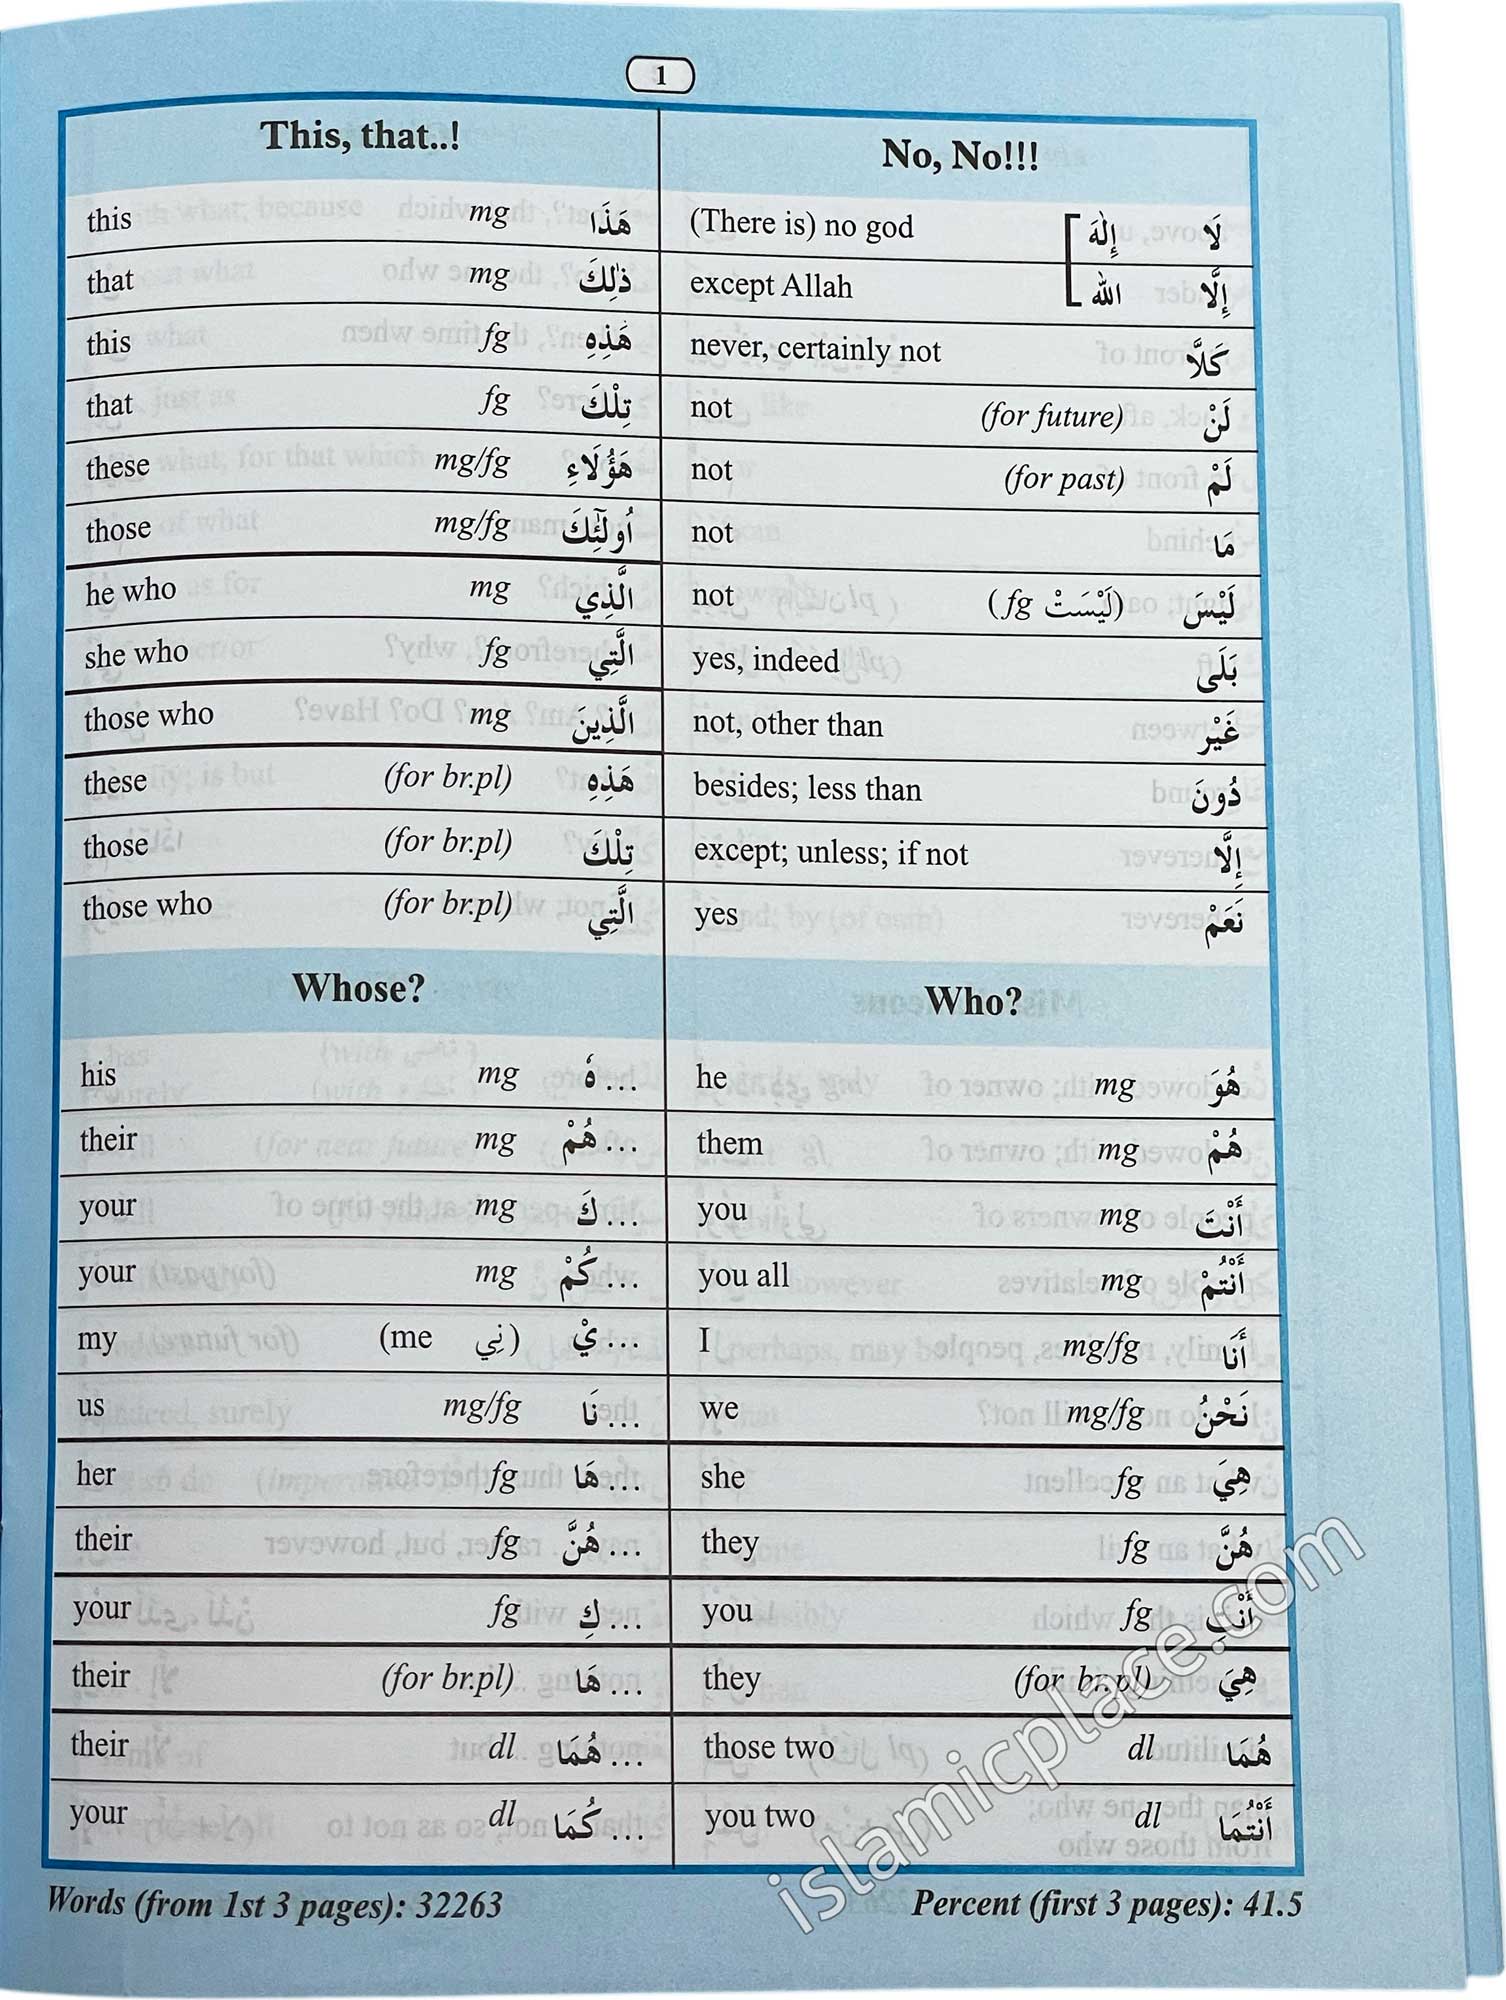 1
This, that..!
this mg هَذَا
that mg ذٰلِكَ
this fg هَٰذِهِ
that fg تِلْكَ
these mg/fg هَؤُلَاءِ
those mg/fg أُولَٰئِكَ
he who mg الَّذِي
she who fg الَّتِي
those who mg الَّذِينَ
these (for br.pl) هَذِهِ
those (for br.pl) تِلْكَ
those who (for br.pl) الَّتِي
No, No!!!
(There is) no god لَا إِلٰهَ
except Allah إِلَّا الله
never, certainly not كَلَّا
not (for future) لَنْ
not (for past) لَمْ
not مَا
not (fg لَيْسَتْ) لَيْسَ
yes, indeed بَلَى
not, other than غَيْر
besides; less than دُونَ
except; unless; if not إِلَّا
yes نَعَمْ
Whose?
his mg ... هٗ
their mg ... هُمْ
your mg ... كَ
your mg ... كُمْ
my (me نِي) ... يْ
us mg/fg ... نَا
her fg ... هَا
their fg ... هُنَّ
your fg ... كِ
their (for br.pl) ... هَا
their dl ... هُمَا
your dl ... كُمَا
Who?
he mg هُوَ
them mg هُمْ
you mg أَنْتَ
you all mg أَنْتُمْ
I mg/fg أَنَا
we mg/fg نَحْنُ
she fg هِيَ
they fg هُنَّ
you fg أَنْتِ
they (for br.pl) هِيَ
those two dl هُمَا
you two dl أَنْتُمَا
Words (from 1st 3 pages): 32263
Percent (first 3 pages): 41.5
islamicplace.com